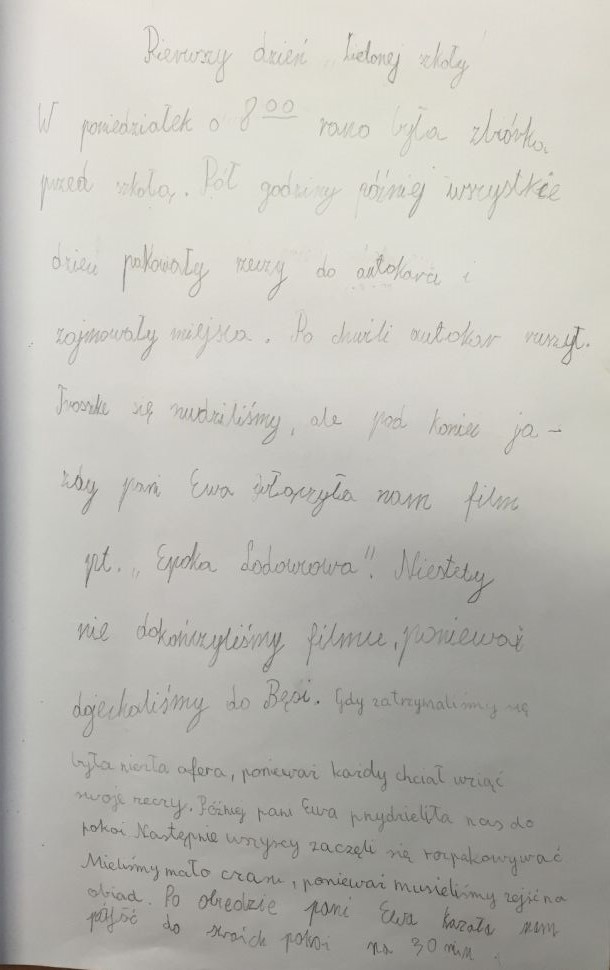 Pierwszy dzień „Zielonej szkoły”
W poniedziałek o 8⁰⁰ rano była zbiórka
przed szkołą. Pół godziny później wszystkie
dzieci pakowały rzeczy do autokaru i
zajmowały miejsca. Po chwili autokar ruszył.
Troszkę się nudziliśmy, ale pod koniec ja-
zdy pani Ewa włączyła nam film
pt. „Epoka Lodowcowa”. Niestety
nie dokończyliśmy filmu, ponieważ
dojechaliśmy do Bęsi. Gdy zatrzymaliśmy się
była niezła afera, ponieważ każdy chciał wziąć
swoje rzeczy. Później pani Ewa przydzieliła nas do
pokoi Następnie wszyscy zaczęli się rozpakowywać
Mieliśmy mało czasu, ponieważ musieliśmy zejść na
obiad. Po obiedzie pani Ewa kazała nam
pójść do swoich pokoi na 30 min.